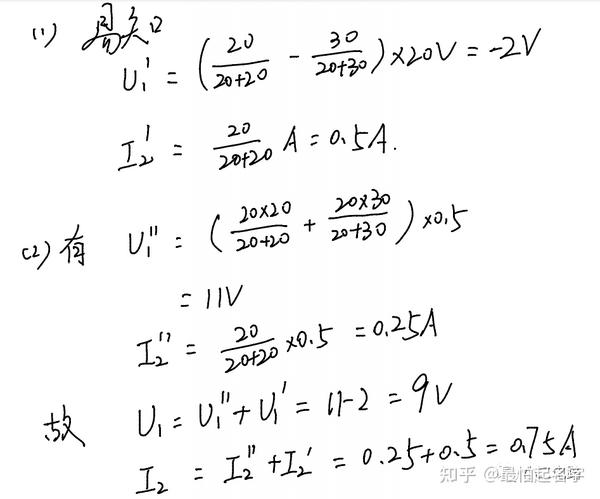 (1) 易知
U₁' = (20/(20+20) - 30/(20+30))×20V = -2V
I₂' = 20/(20+20) A = 0.5A.
(2) 有 U₁'' = (20×20/(20+20) + 20×30/(20+30))×0.5
= 11V
I₂'' = 20/(20+20) ×0.5 = 0.25A
故 U₁ = U₁''+U₁' = 11-2 = 9V
I₂ = I₂''+I₂' = 0.25+0.5 = 0.75A
知乎 @最怕起名字